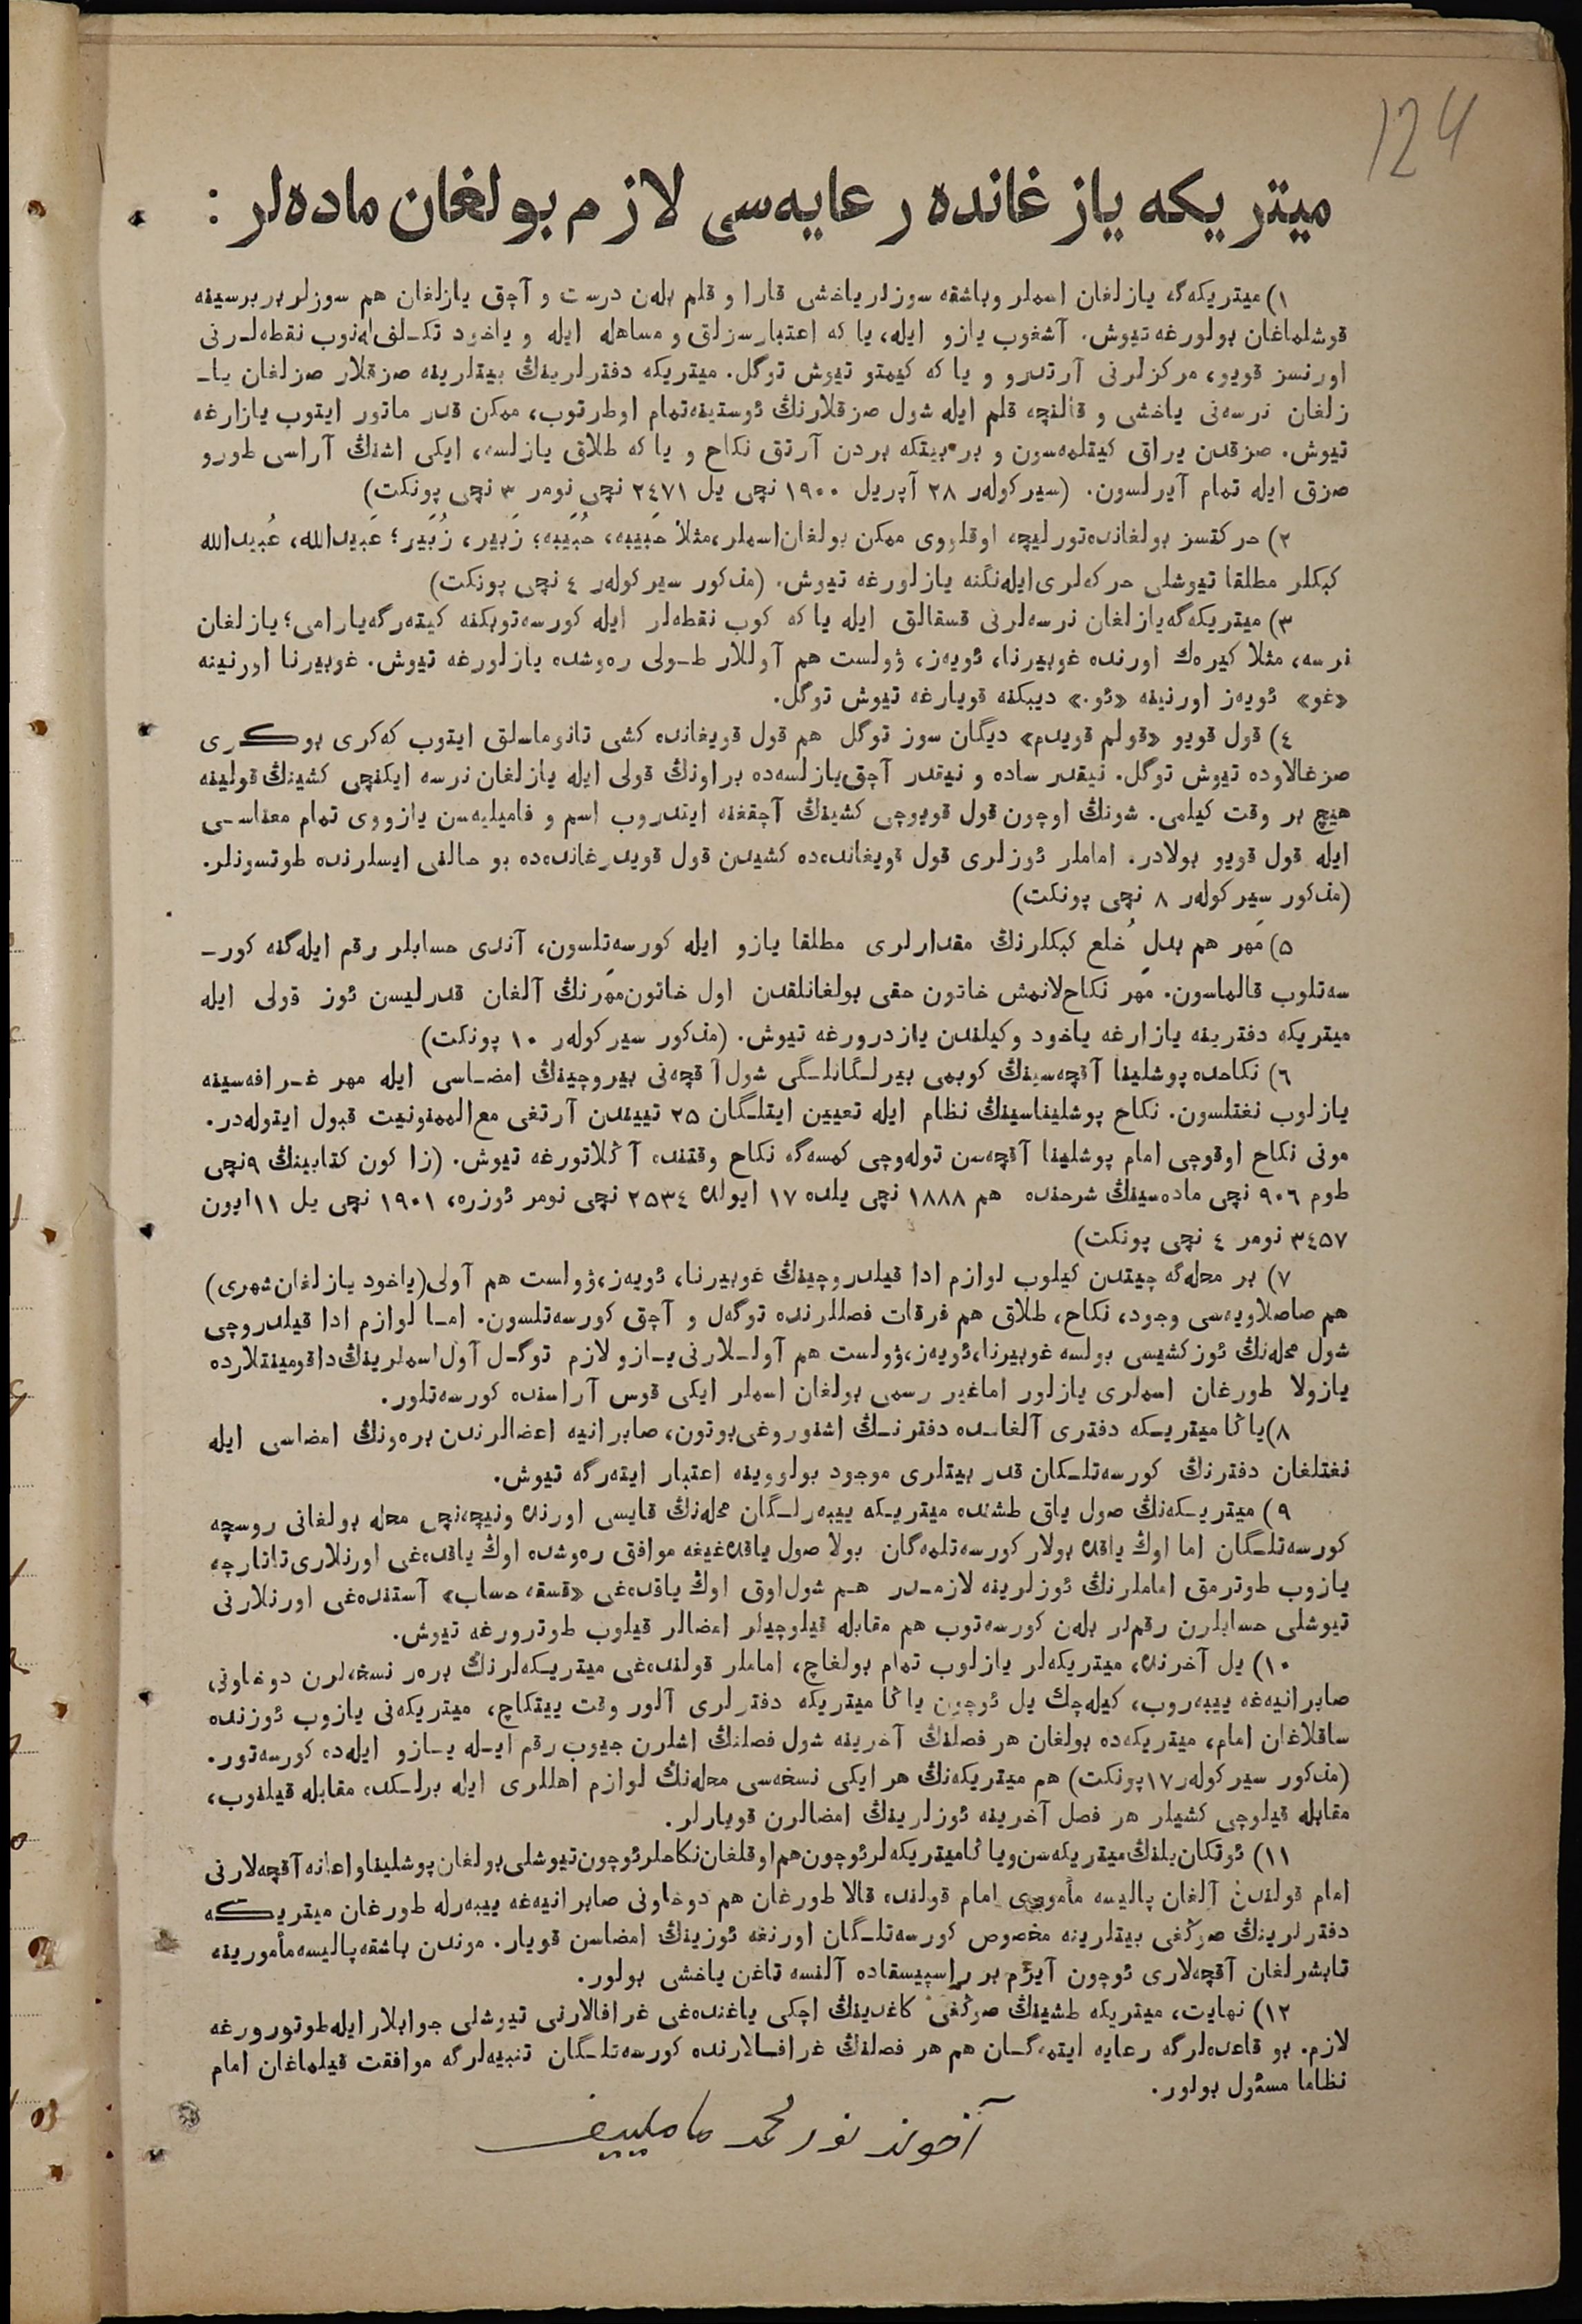 124
میتریکه یازغانده رعایه‌سی لازم بولغان ماده‌لر :
۱) میتریکه‌گه یازلغان اسملر وباشقه سوزلر یاخشی قارا و قلم بله‌ن درست و آچق یازلغان هم سوزلر بر برسینه
قوشلماغان بولورغه تیوش. آشغوب یازو ایله، یا که اعتبارسزلق و مساهله ایله و یاخود تکـلف له‌نوب نقطه‌لـرنی
اورنسز قویو، مرکزلرنی آرتدرو و یا که کیمتو تیوش توگل. میتریکه دفترلرینڭ بیتلرینه صزقلار صزلغان یا-
زلغان نرسه‌نی یاخشی و قالنچه قلم ایله شول صزقلارنڭ ئوستینه تمام اوطرتوب، ممکن قدر ماتور ایتوب یازارغه
تیوش. صزقدن یراق کیتلمه‌سون و بر بیتکه بردن آرتق نکاح و یا که طلاق یازلسه، ایکی اشنڭ آراسی طورو
صزق ایله تمام آیرلسون. (سیرکوله‌ر ۲۸ آپریل ۱۹۰۰ نچی یل ۲٤۷۱ نچی نومر ۳ نچی پونکت)
۲) حرکتسز بولغانده تورلیچه اوقلووی ممکن بولغان اسملر، مثلا حَبیبه، حُبَیبه؛ زَبیر، زُبَیر؛ عَبیدالله، عُبیدالله
کبکلر مطلقا تیوشلی حرکه‌لری ایله‌نگنه یازلورغه تیوش. (مذکور سیرکوله‌ر ٤ نچی پونکت)
۳) میتریکه‌گه یازلغان نرسه‌لرنی قسقالق ایله یا که کوب نقطه‌لر ایله کورسه‌توبکنه کیته‌رگه یارامی؛ یازلغان
نرسه، مثلا کیره‌ك اورنده غوبیرنا، ئویه‌ز، ۋولست هم آوللار طـولی ره‌وشده یازلورغه تیوش. غوبیرنا اورنینه
«غو» ئویه‌ز اورنینه «ئو.» دیبکنه قویارغه تیوش توگل.
٤) قول قویو «قولم قویدم» دیگان سوز توگل هم قول قویغانده کشی تانوماسلق ایتوب که‌کری بوکـری
صزغالاوده تیوش توگل. نیقدر ساده و نیقدر آچق یازلسه‌ده براونڭ قولی ایله یازلغان نرسه ایکنچی کشینڭ قولینه
هیچ بر وقت کیلمی. شونڭ اوچون قول قویوچی کشینڭ آچقغنه ایتدروب اسم و فامیلیه‌سن یازووی تمام معناسـی
ایله قول قویو بولادر. اماملر ئوزلری قول قویغانده‌ده کشیدن قول قویدرغانده‌ده بو حالنی ایسلرنده طوتسونلر.
(مذکور سیرکوله‌ر ۸ نچی پونکت)
۵) مَهر هم بدل خُلع کبکلرنڭ مقدارلری مطلقا یازو ایله کورسه‌تلسون، آندی حسابلر رقم ایله‌گنه کور-
سه‌تلوب قالماسون. مَهر نکاحلانمش خاتون حقی بولغانلقدن اول خاتون مَهرنڭ آلغان قدرلیسن ئوز قولی ایله
میتریکه دفترینه یازارغه یاخود وکیلندن یازدرورغه تیوش. (مذکور سیرکوله‌ر ۱۰ پونکت)
٦) نکاحده پوشلینا آقچه‌سینڭ کوبمی بیرلـگانلـگی شول آقچه‌نی بیروچینڭ امضـاسی ایله مهر غـرافه‌سینه
یازلوب نغتلسون. نکاح پوشلیناسینڭ نظام ایله تعیین ایتلـگان ۲۵ تییندن آرتغی مع‌الممنونیت قبول ایتوله‌در.
مونی نکاح اوقوچی امام پوشلینا آقچه‌سن توله‌وچی کمسه‌گه نکاح وقتنده آڭلاتورغه تیوش. (زاکون کتابینڭ ۹نچی
طوم ۹۰٦ نچی ماده‌سینڭ شرحنده هم ۱۸۸۸ نچی یلده ۱۷ ایولده ۲۵۳٤ نچی نومر ئوزره، ۱۹۰۱ نچی یل ۱۱ ایون
۳٤۵۷ نومر ٤ نچی پونکت)
۷) بر محله‌گه چیتدن کیلوب لوازم ادا قیلدروچینڭ غوبیرنا، ئویه‌ز، ۋولست هم آولی (یاخود یازلغان شهری)
هم صاصلاویه‌سی وجود، نکاح، طلاق هم فرقات فصللرنده توگه‌ل و آچق کورسه‌تلسون. امـا لوازم ادا قیلدروچی
شول محله‌نڭ ئوز کشیسی بولسه غوبیرنا، ئویه‌ز، ۋولست هم آولـلارنی یـازو لازم توگـل آول اسملرینڭ داقومینتلارده
یازولا طورغان اسملری یازلور اماغیر رسمی بولغان اسملر ایکی قوس آراسنده کورسه‌تلور.
۸) یاڭا میتریـکه دفتری آلغانـده دفترنـڭ اشنوروغی بوتون، صابرانیه اعضالرندن بره‌ونڭ امضاسی ایله
نغتلغان دفترنڭ کورسه‌تلـکان قدر بیتلری موجود بولووینه اعتبار ایته‌رگه تیوش.
۹) میتریـکه‌نڭ صول یاق طشنده میتریـکه ییبه‌رلـگان محله‌نڭ قایسی اورنده ونیچه‌نچی محله بولغانی روسچه
کورسه‌تلـگان اما اوڭ یاقده بولار کورسه‌تلمه‌گان بولا صول یاقده‌غیغه موافق ره‌وشده اوڭ یاقده‌غی اورنلاری تاتارچه
یازوب طوترمق اماملرنڭ ئوزلرینه لازمـدر هـم شول اوق اوڭ یاقده‌غی «قسقه حساب» آستنده‌غی اورنلارنی
تیوشلی حسابلرن رقملر بله‌ن کورسه‌توب هم مقابله قیلوچیلر امضالر قیلوب طوترورغه تیوش.
۱۰) یل آخرنده، میتریکه‌لر یازلوب تمام بولغاچ، اماملر قولنده‌غی میتریـکه‌لرنڭ بره‌ر نسخه‌لرن دوخاونی
صابرانیه‌غه ییبه‌روب، کیله‌چك یل ئوچون یاڭا میتریکه دفترلری آلور وقت ییتکاچ، میتریکه‌نی یازوب ئوزنده
ساقلاغان امام، میتریکه‌ده بولغان هر فصلنڭ آخرینه شول فصلنڭ اشلرن جیوب رقم ایـله یـازو ایله‌ده کورسه‌تور.
(مذکور سیرکوله‌ر ۱۷ پونکت) هم میتریکه‌نڭ هر ایکی نسخه‌سی محله‌نڭ لوازم اهللری ایله برلـکده مقابله قیلنوب،
مقابله قیلوچی کشیلر هر فصل آخرینه ئوزلرینڭ امضالرن قویارلر.
۱۱) ئوتکان یلنڭ میتریکه‌سن ویاڭا میتریکه‌لر ئوچون هم اوقلغان نکاحلر ئوچون تیوشلی بولغان پوشلینا و اعانه آقچه‌لارنی
امام قولندن آلغان پالیسه مأموری امام قولنده قالا طورغان هم دوخاونی صابرانیه‌غه ییبه‌رله طورغان میتریـکه
دفترلرینڭ صوڭغی بیتلرینه مخصوص کورسه‌تلـگان اورنغه ئوزینڭ امضاسن قویار. موندن باشقه پالیسه مأمورینه
تابشرلغان آقچه‌لاری ئوچون آیرم بر راسپیسقاده آلنسه تاغن یاخشی بولور.
۱۲) نهایت، میتریکه طشینڭ صوڭغی کاغدینڭ اچکی یاغنده‌غی غرافالارنی تیوشلی جوابلار ایله طوتورورغه
لازم. بو قاعده‌لرگه رعایه ایتمه‌گـان هم هر فصلنڭ غرافـالارنده کورسه‌تلـگان تنبیه‌لرگه موافقت قیلماغان امام
نظاما مسئول بولور.
آخوند نور محمد ماملییف